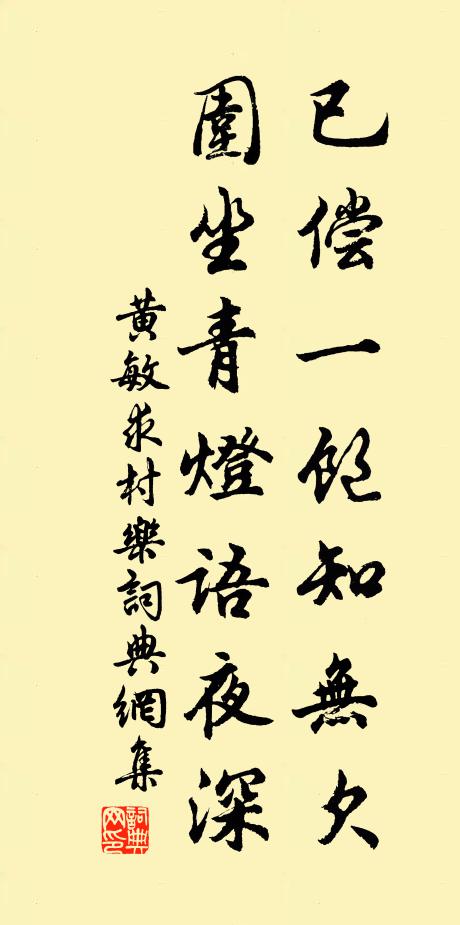 已偿一飽知無欠
圍坐青燈語夜深
黄敏求村樂詞典網集
詞典
网印